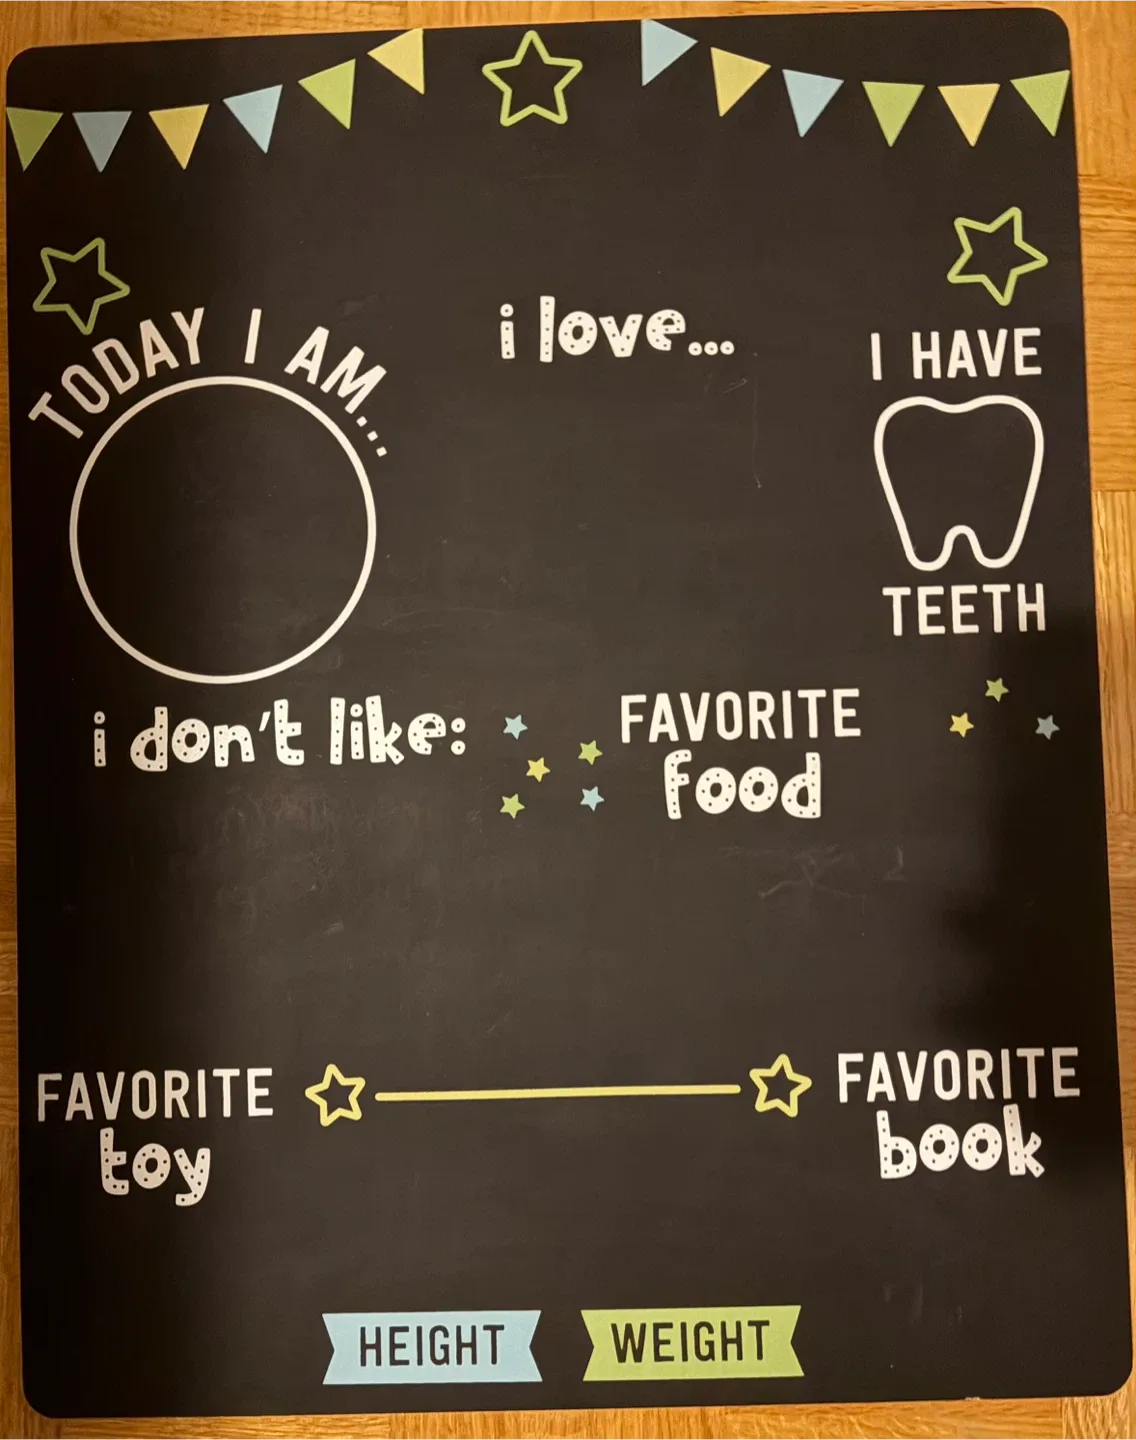 TODAY I AM...
i love...
I HAVE
TEETH
i don't like:
FAVORITE
food
FAVORITE
toy
FAVORITE
book
HEIGHT
WEIGHT